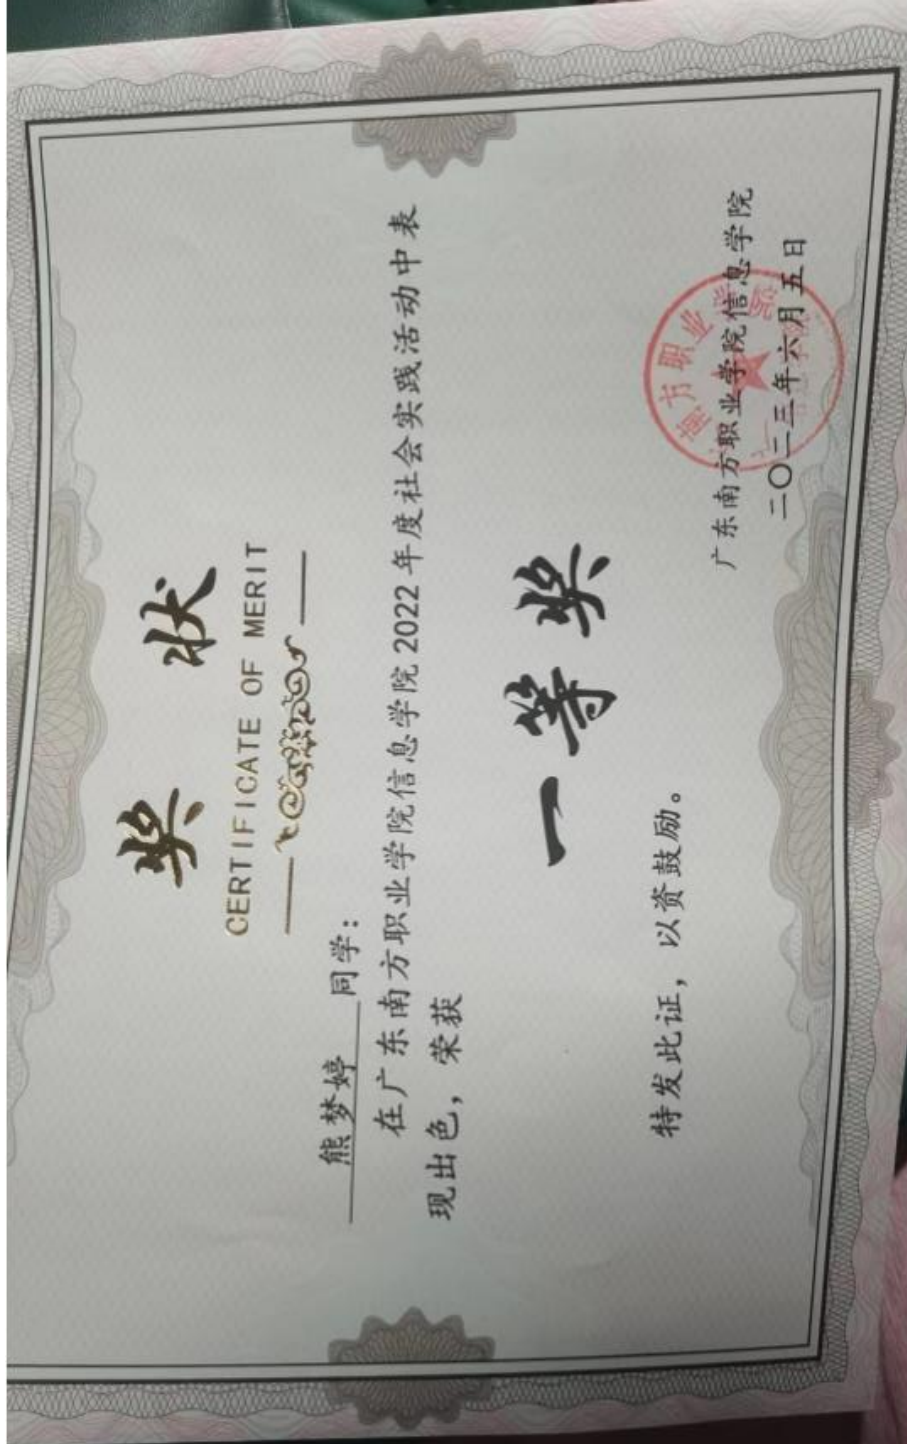 奖状
CERTIFICATE OF MERIT
熊梦婷 同学：
在广东南方职业学院信息学院2022年度社会实践活动中表
现出色，荣获
一等奖
特发此证，以资鼓励。
广东南方职业学院信息学院
二〇二三年六月五日
南方职业学院